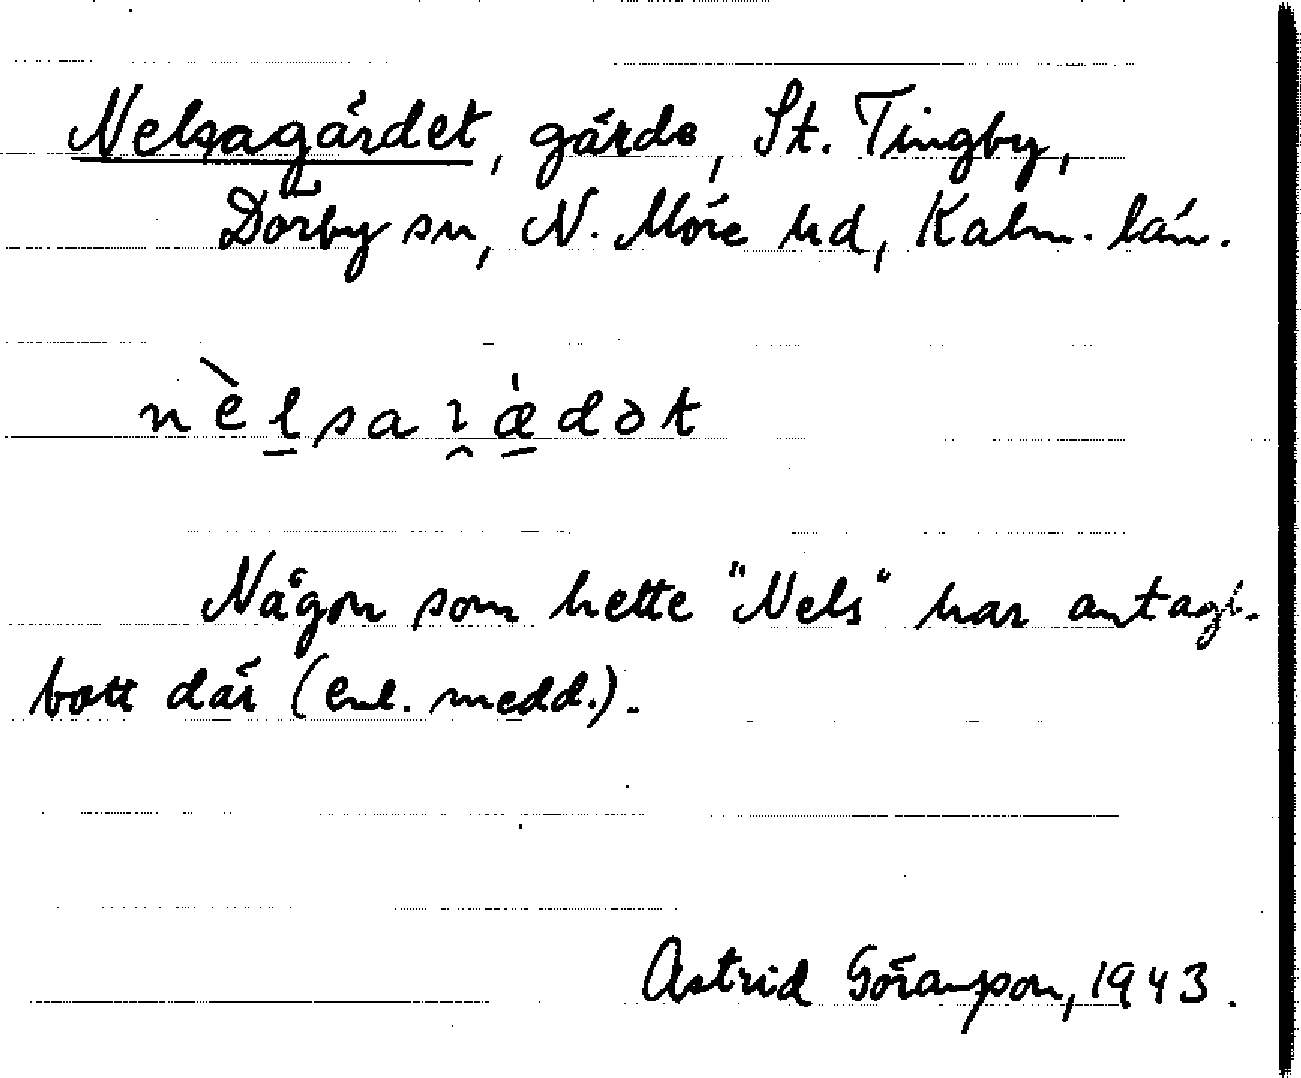 Nelsagärdet, gärde, St. Tingby,
Dörby sn, N. Möre hd, Kalm. län.
nèl̠saɿ̯æ̠̍dət
Någon som hette "Nels" har antagl.
bott där (enl. medd.).
Astrid Göransson, 1943.